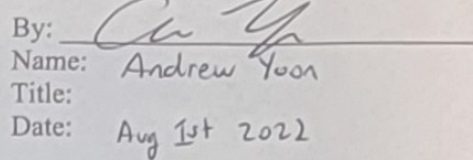 By:
Name: Andrew Yoon
Title:
Date: Aug 1st 2022